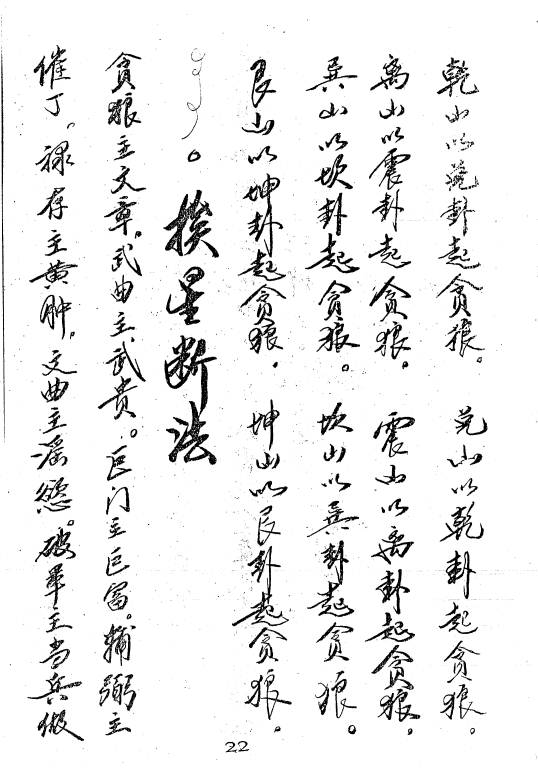 乾山以兑卦起贪狼。 兑山以乾卦起贪狼。
离山以震卦起贪狼。 震山以离卦起贪狼。
巽山以坎卦起贪狼。 坎山以巽卦起贪狼。
艮山以坤卦起贪狼。 坤山以艮卦起贪狼。
。揆星断法
贪狼主文章。武曲主武贵。巨门主巨富。辅弼主
催丁。禄存主黄肿。文曲主淫慾。破军主当兵做
22